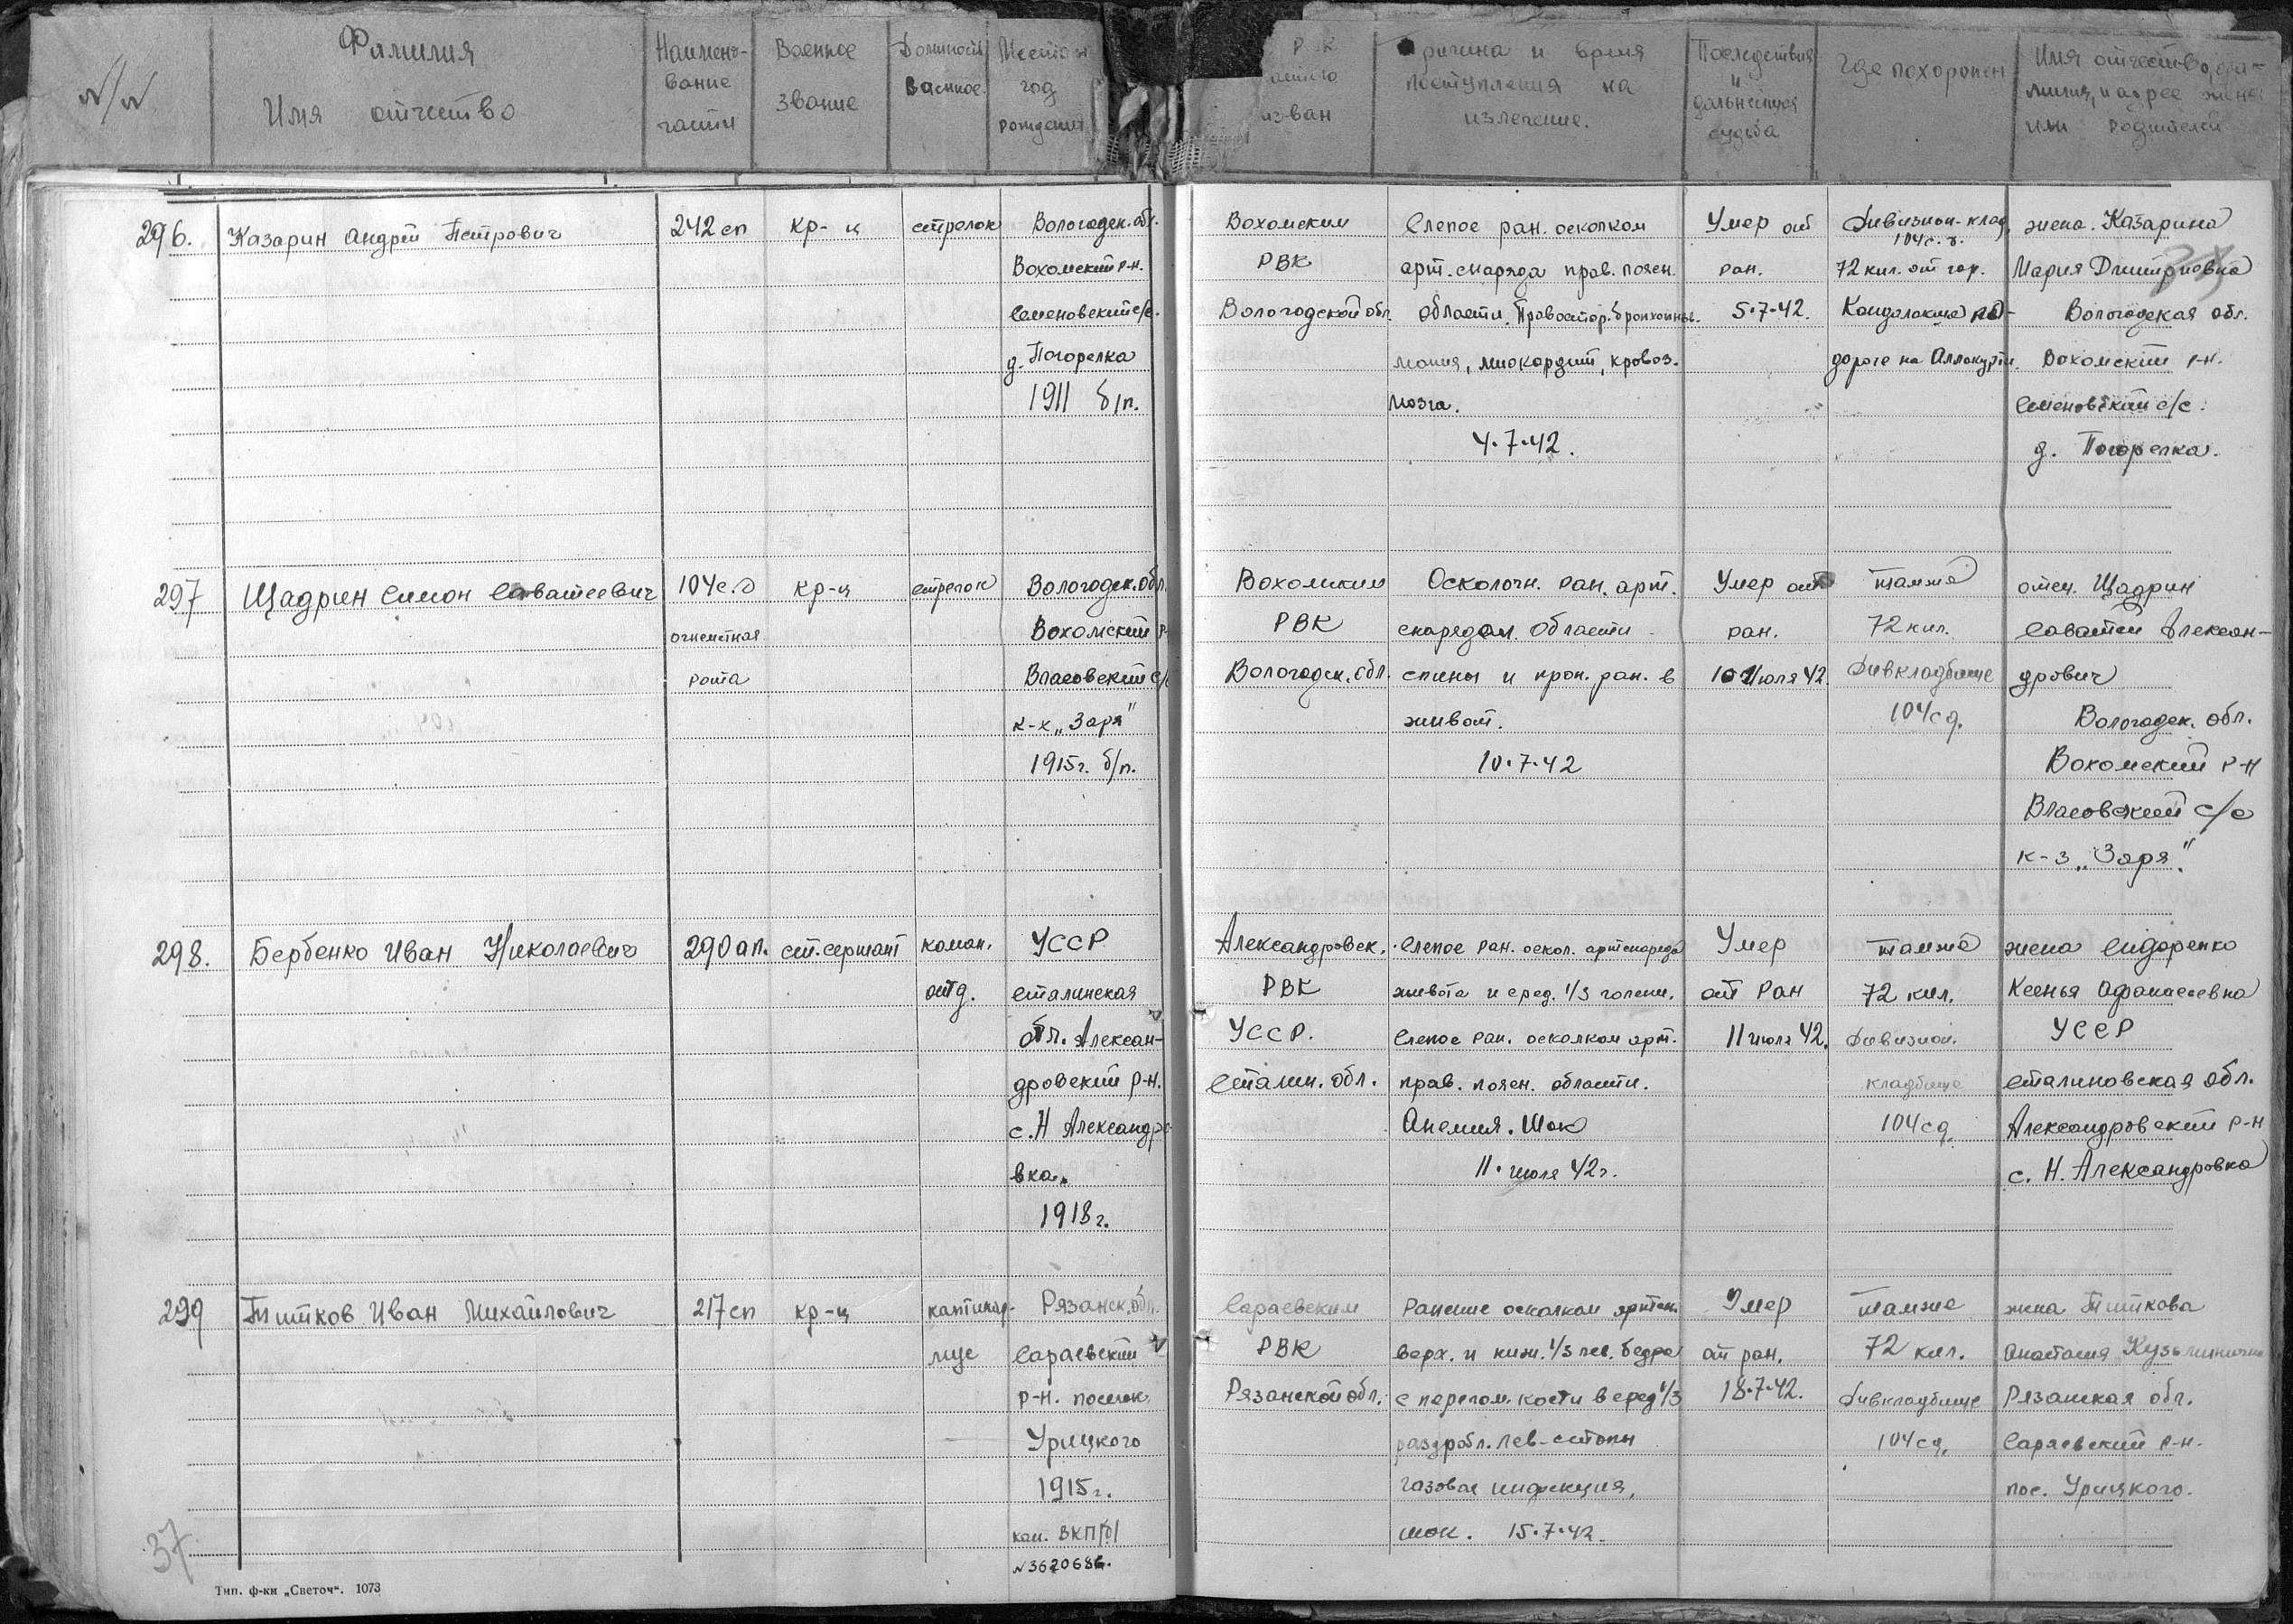 №/№
Фамилия
Имя отчество
Наимено-
вание
части
Военное
звание
Должность
Военное
Место и
год
рождения
РВК
изван
Причина и время
поступления на
излечение.
Последствия
и
дальнейшая
судьба
Где похоронен
Имя отчество, фа-
милия, и адрес жены
или родителей
296.
Казарин Андрей Петрович
242 сп
кр-ц
стрелок
Вологодск. обл.
Вохомский р-н.
Семеновский с/с.
д. Погорелка
1911 б/п.
Вохомским
РВК
Вологодской обл.
Слепое ран. осколком
арт. снаряда прав. поясн.
области. Правостор. бронхопнев-
мония, миокардит, кровоз.
мозга.
4.7.42.
Умер от
ран.
5.7.42.
Дивизион. клад.
104 с.д.
72 кил. от гор.
Кандалакша по
дороге на Аллакурти.
жена. Казарина
Мария Дмитриевна
Вологодская обл.
Вохомский р-н.
Семеновский с/с.
д. Погорелка.
297
Щадрин Симон Саватеевич
104 с.д
огнеметная
рота
кр-ц
стрелок
Вологодск. обл.
Вохомский р-
Власовский с/с
к-х „Заря"
1915г. б/п.
Вохомским
РВК
Вологодск. обл.
Осколочн. ран. арт.
снарядом области
спины и прон. ран. в
живот.
10.7.42
Умер от
ран.
10 Июля 42.
тамже
72 кил.
Дивкладбище
104 сд.
отец. Щадрин
Саватей Алексан-
дрович
Вологодск. обл.
Вохомский р-н
Власовский с/с
к-з „Заря".
298.
Бербенко Иван Николаевич
290 ап.
ст. сержант
коман.
отд.
УССР
сталинская
обл. Алексан-
дровский р-н.
с. Н Александро
вка.
1918г.
Александровск.
РВК
УССР.
Сталин. обл.
Слепое ран. оскол. артснаряда
живота и сред. 1/3 голени.
Слепое ран. осколком арт.
прав. поясн. области.
Анемия. Шок
11. июля 42г.
Умер
от ран
11 июля 42.
тамже
72 кил.
дивизион.
кладбище
104 сд.
жена Сидоренко
Ксенья Афанасевна
УССР
сталиновская обл.
Александровский р-н
с. Н. Александровка
299
Титков Иван Михайлович
217 сп
кр-ц
Рязанск. обл.
Сараевский
р-н. поселок
Урицкого
1915г.
кан. ВКП/б/
№3620686.
Сараевским
РВК
Рязанской обл.
Ранение осколком артсн.
верх. и ниж. 1/3 лев. бедра
с перелом. кости в сред 1/3
раздробл. лев. стопы
газовая инфекция,
шок. 15.7.42.
Умер
от ран.
18.7.42.
тамже
72 кил.
дивкладбище
104 сд,
жена Титкова
Анастасия Кузьминична
Рязанская обл.
Сараевский р-н.
пос. Урицкого.
37
Тип. ф-ки „Светоч". 1073